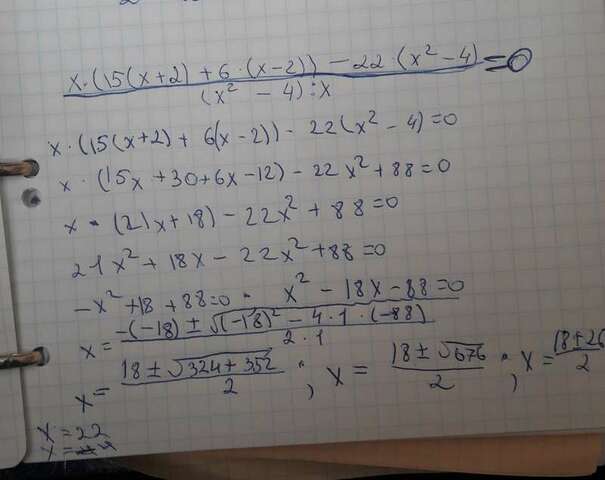 x·(15(x+2) + 6·(x-2)) - 22·(x² - 4) = 0
(x² - 4)·x
x·(15(x+2) + 6(x-2)) - 22(x² - 4) = 0
x·(15x + 30 + 6x - 12) - 22x² + 88 = 0
x·(21x + 18) - 22x² + 88 = 0
21x² + 18x - 22x² + 88 = 0
-x² + 18 + 88 = 0 · x² - 18x - 88 = 0
x = -(-18) ± √(-18)² - 4·1·(-88)
2·1
x = 18 ± √324 + 352 ; x = 18 ± √676 ; x = 18 ± 26
2 2 2
x = 22
x =